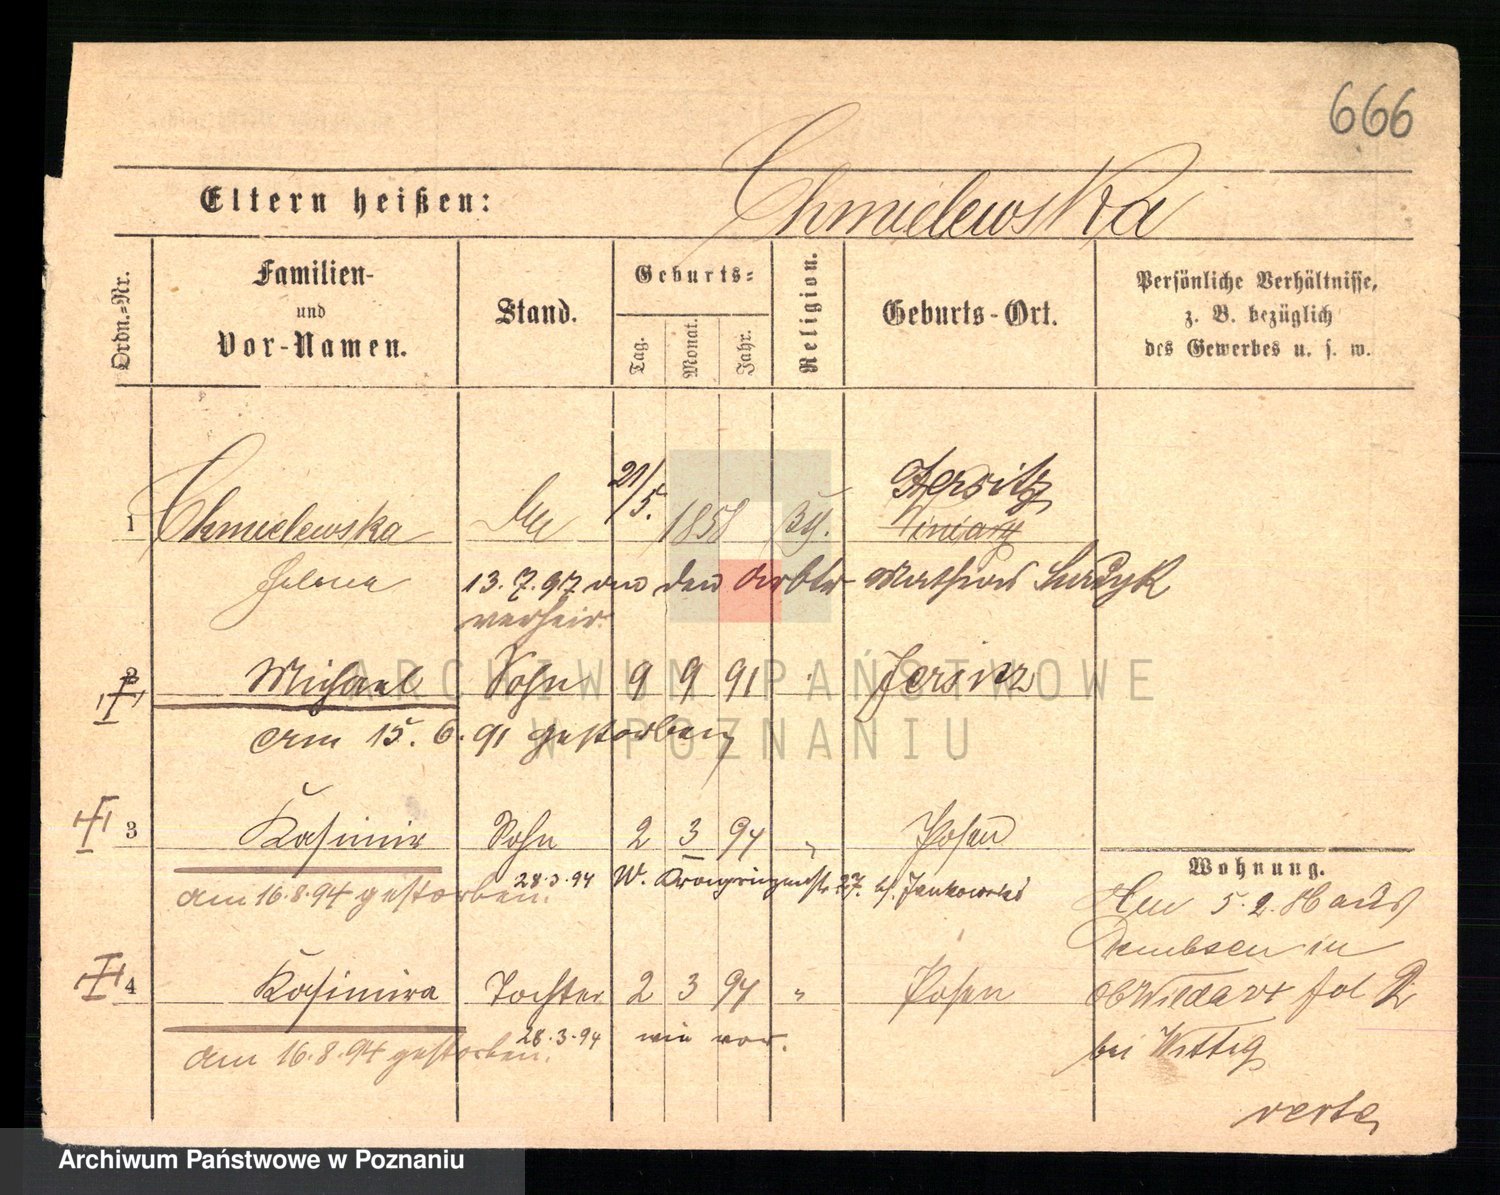 666
Eltern heißen: Chmielewska
Ordn.-Nr.
Familien-
und
Vor-Namen.
Stand.
Geburts-
Tag.
Monat.
Jahr.
Religion.
Geburts-Ort.
Persönliche Verhältnisse,
z. B. bezüglich
des Gewerbes u. s. w.
Jersitz
1 Chmielewska 21/5. 1858
Helena 13.7.97 an den Arbtr Mathias
verheir.
2 Michael Sohn 9 9 91 Jersitz
am 15.6.91 gestorben
3 Kasimir Sohn 2 3 94 " Posen
Wohnung.
am 16.8.94 gestorben. 28.3.94 W. 27. b/
5.2. Haus
in
4 Kasimira Tochter 2 3 94 " Posen
fol
am 16.8.94 gestorben. 28.3.94 wie vor.
bei Wittig
verte
ARCHIWUM PAŃSTWOWE
W POZNANIU
Archiwum Państwowe w Poznaniu